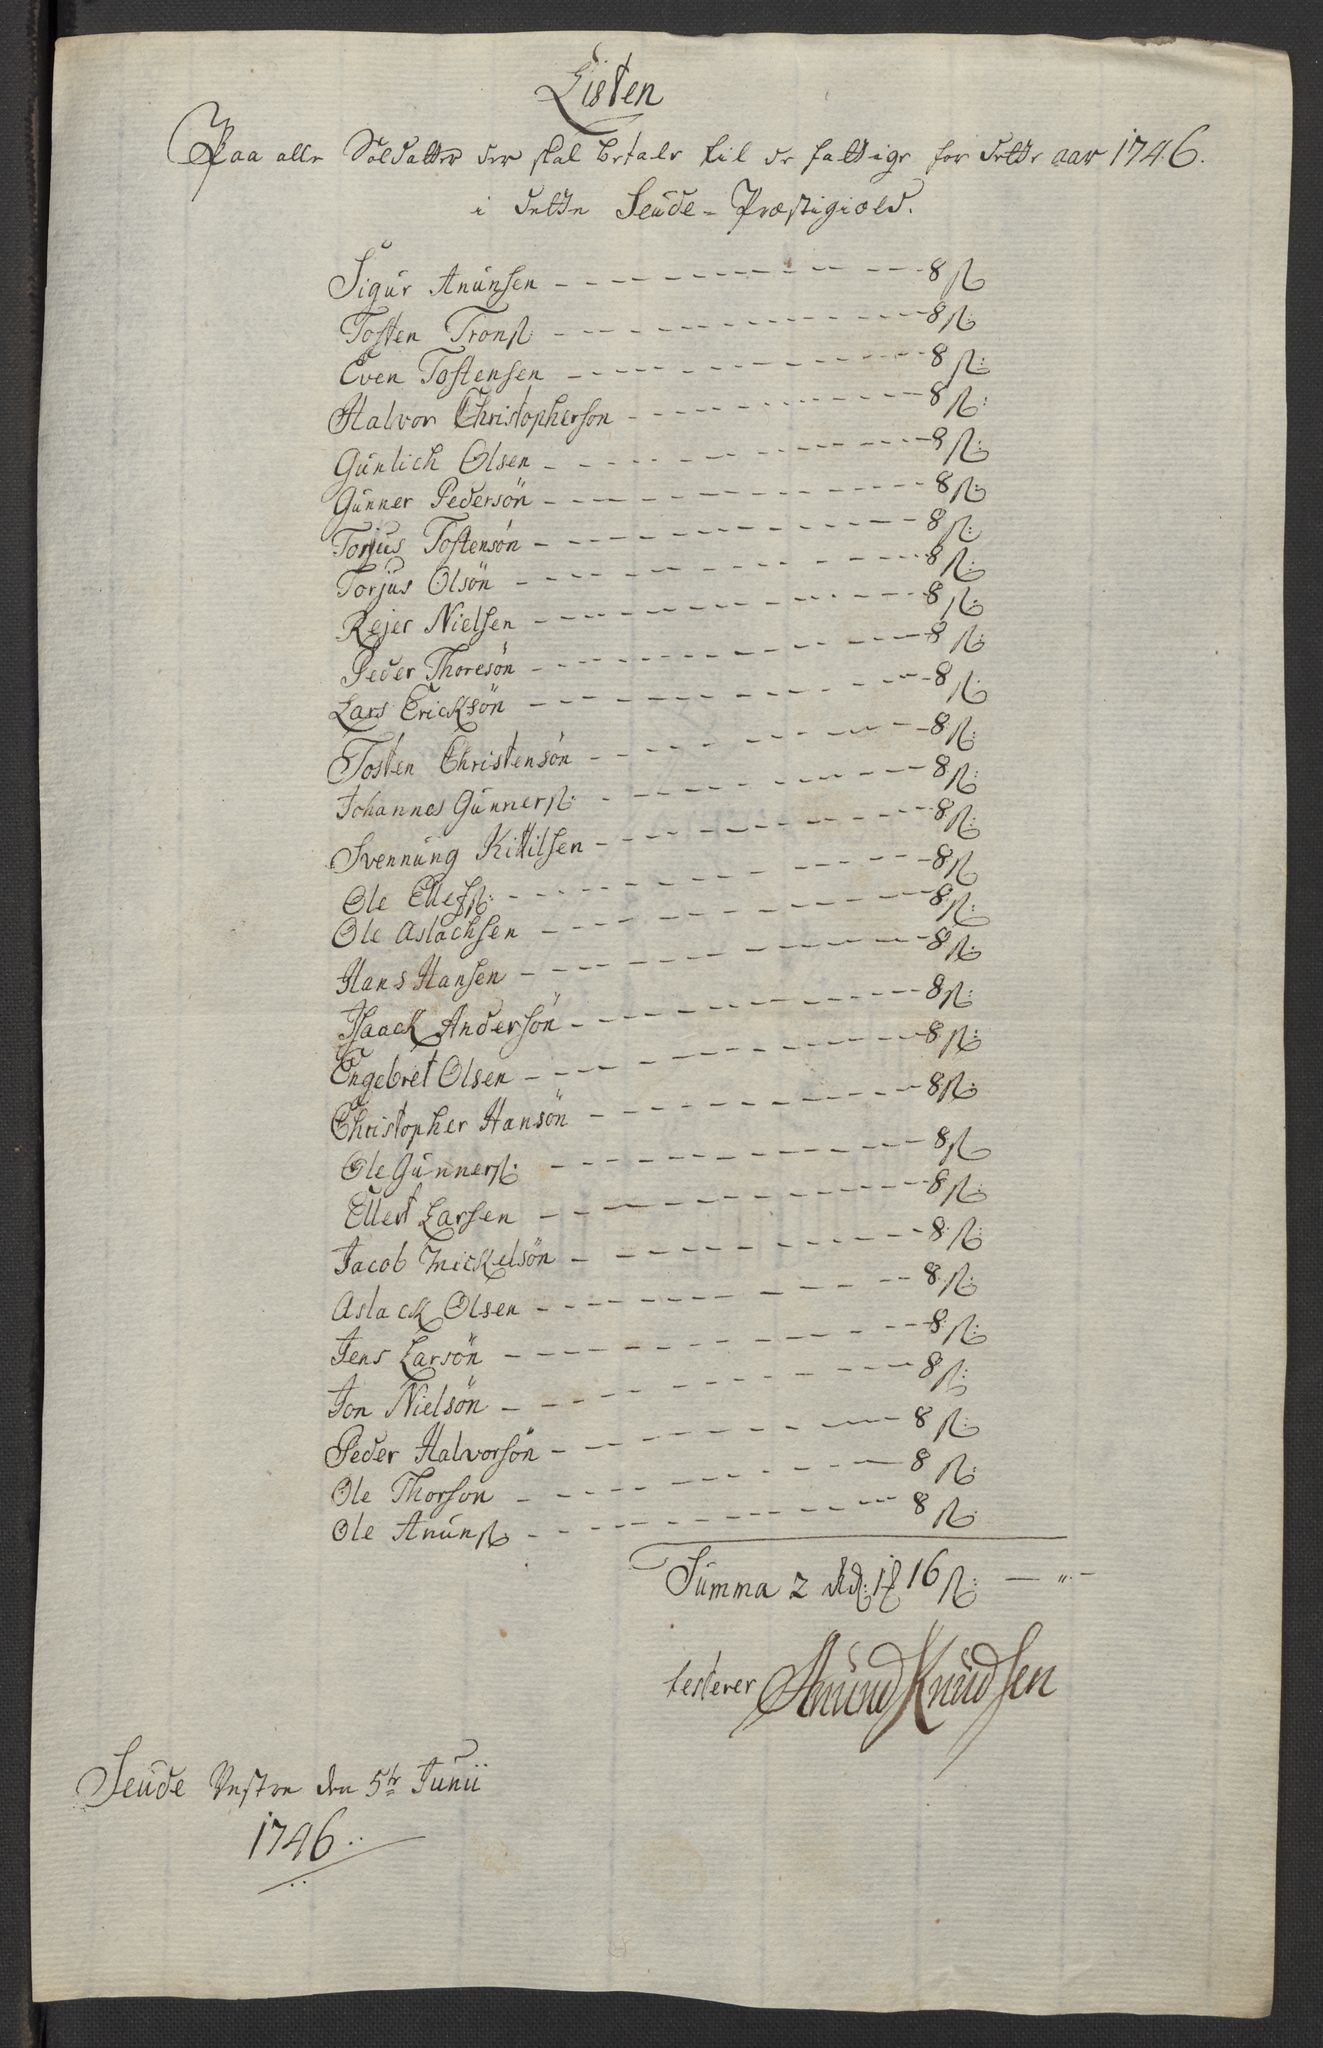 Listen
Paa alle Soldatter der skal betale til de fattige for dette aar 1746.
i dette Seude - Præstigield.
Sigur Anunsen - - - 8 ß
Tosten Tronß: - - - 8 ß:
Even Tostensen - - - 8 ß:
Halvor Christopherson - - - 8 ß:
Gunlich Olsen - - - 8 ß:
Gunner Pedersön - - - 8 ß:
Torjus Tostensön - - - 8 ß:
Torjus Olsön - - - 8 ß:
Rejer Nielsen - - - 8 ß:
Peder Thoresön - - - 8 ß:
Lars Ericksön - - - 8 ß:
Tosten Christensön - - - 8 ß:
Johannes Gunnerß: - - - 8 ß:
Svennung Kittilsen - - - 8 ß:
Ole Ellefß: - - - 8 ß
Ole Aslachsen - - - 8 ß:
Hans Hansen - - - 8 ß:
Isaack Andersön - - - 8 ß:
Engebret Olsen - - - 8 ß:
Christopher Hansön - - - 8 ß:
Ole Gunnerß: - - - 8 ß
Ellert Larsen - - - 8 ß:
Jacob Mickelsön - - - 8 ß:
Aslack Olsen - - - 8 ß:
Jens Larsön - - - 8 ß:
Jon Nielsön - - - 8 ß:
Peder Halvorsön - - - 8 ß:
Ole Thorson - - - 8 ß:
Ole Anunß: - - - 8 ß:
Summa 2 rd: 1 16 ß: — " —
testerer Anund Knudsen
Seude Vestre den 5te Junii
1746